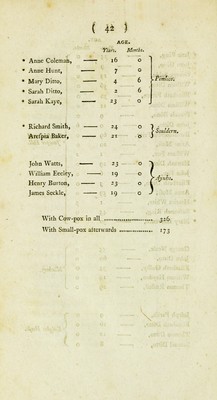 ( 42 )
AGE.
Years. Months.
* Anne Coleman, — 16 0
* Anne Hunt, — 7 0
* Mary Ditto, — 4 6 Pimlico.
* Sarah Ditto, — 2 6
* Sarah Kaye, — 23 0
* Richard Smith, — 24 0 Souldern.
* Arespia Baker, — 21 0
John Watts, — 23 0
William Eccley, — 19 0
Henry Burton, — 23 0 Aynho.
James Seckle, — 19 0
With Cow-pox in all 326.
With Small-pox afterwards 173